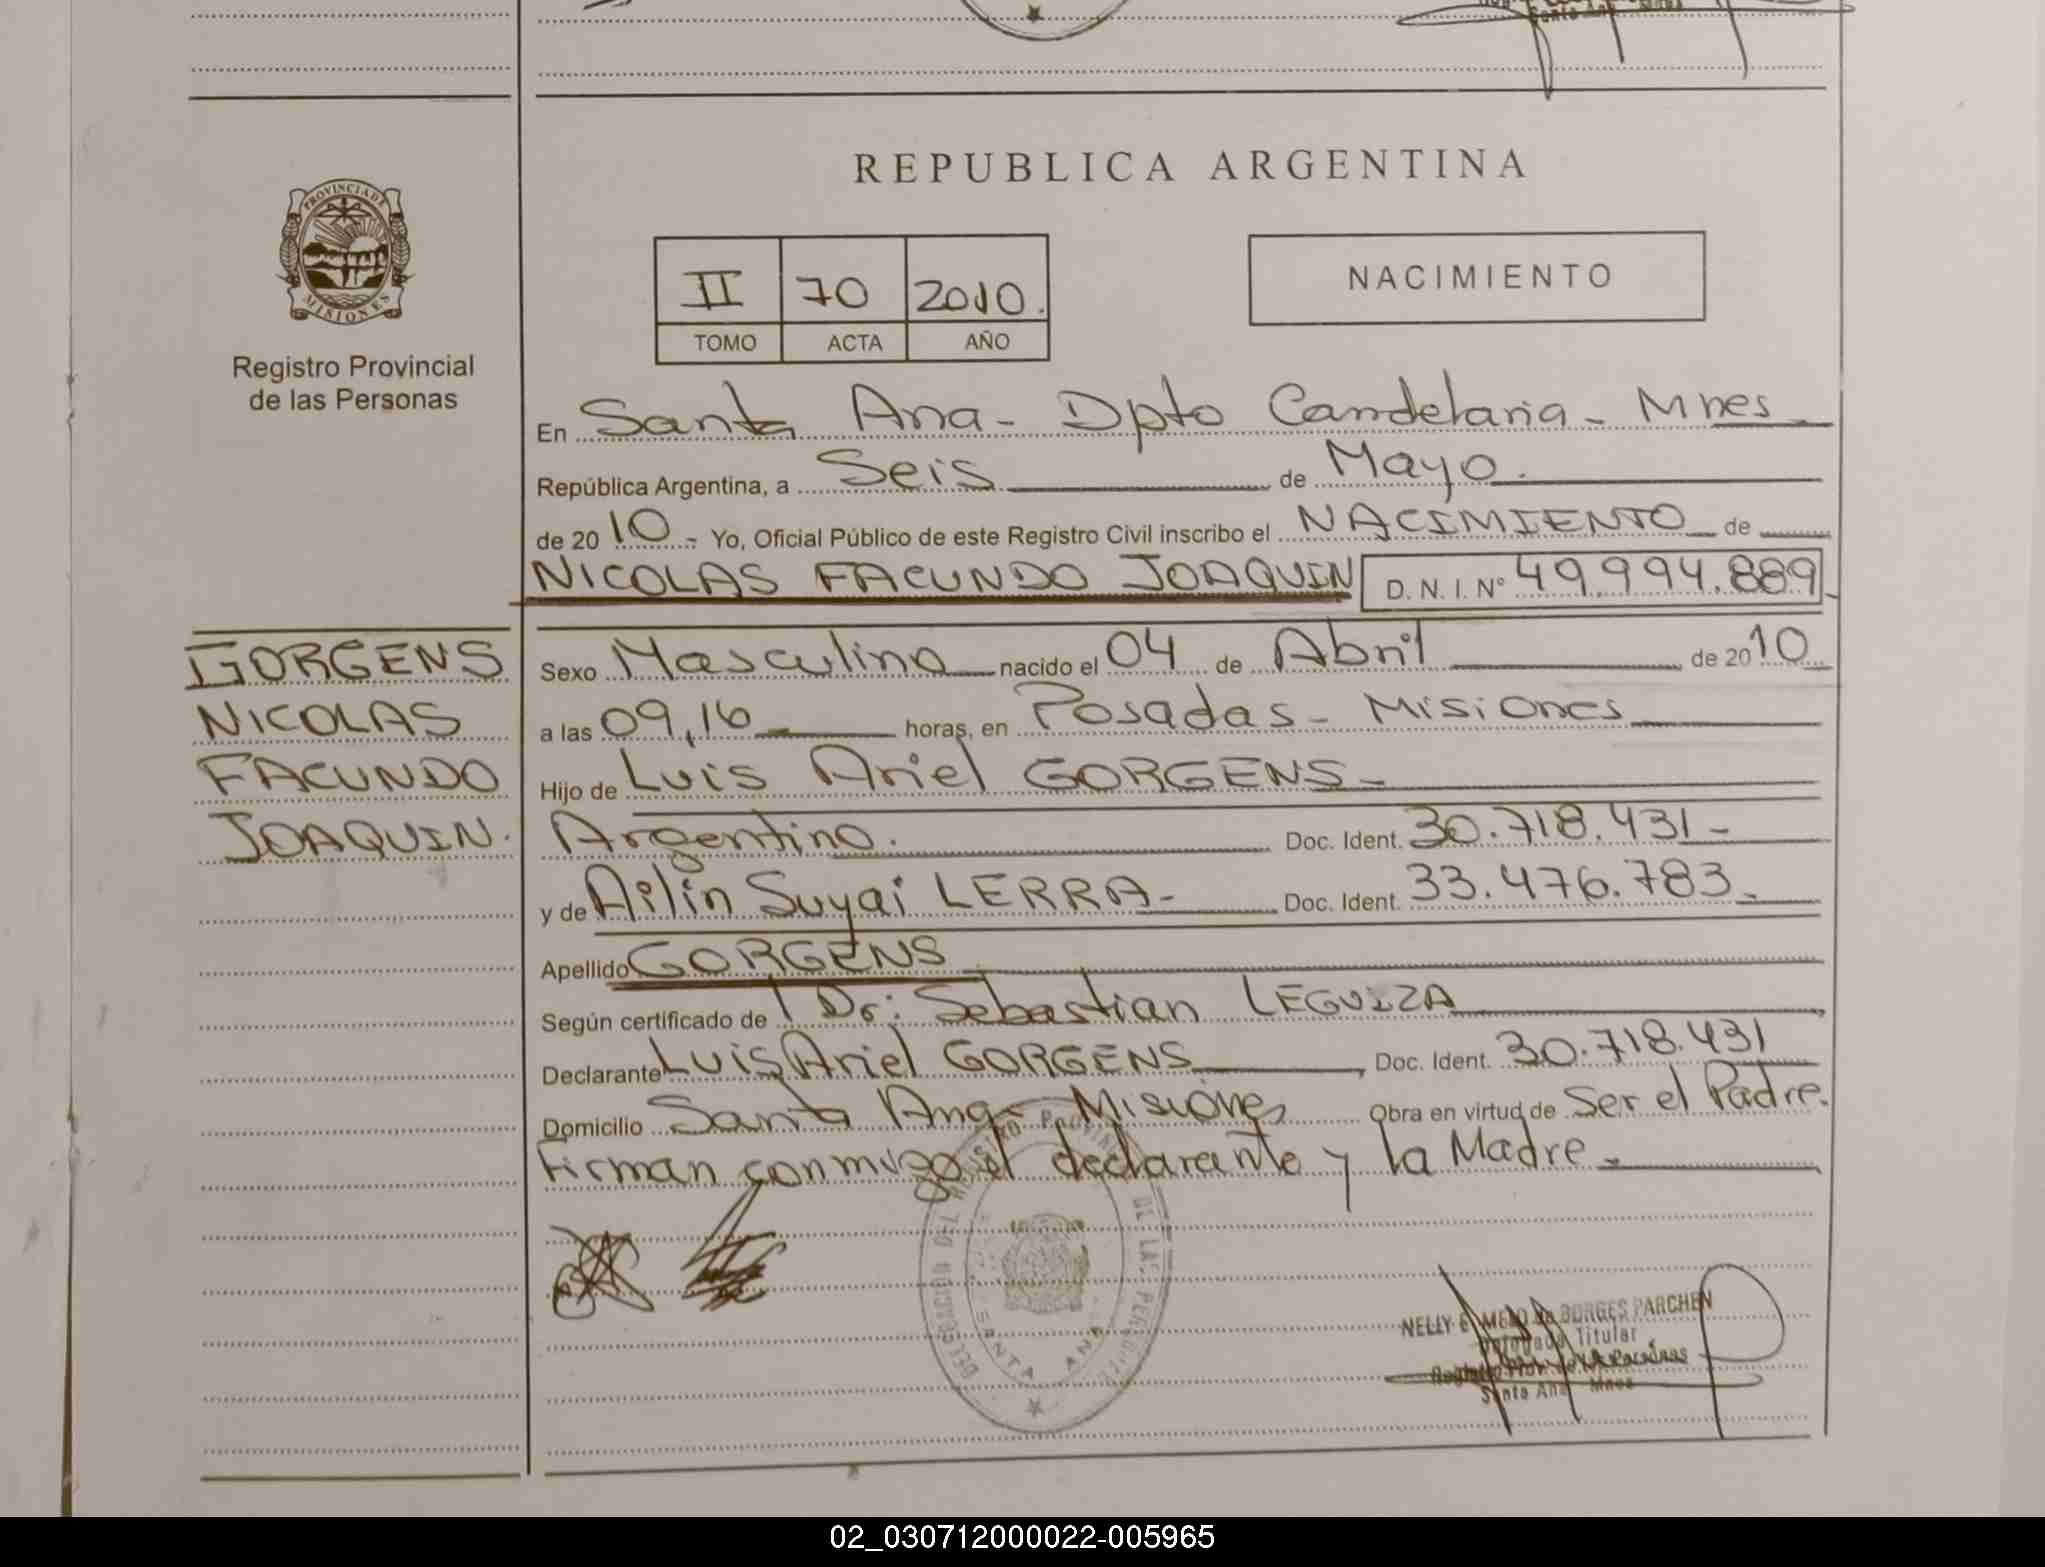 Santa Ana Mnes
REPUBLICA ARGENTINA
PROVINCIA DE
MISIONES
Registro Provincial
de las Personas
II 70 2010.
TOMO ACTA AÑO
NACIMIENTO
En Santa Ana - Dpto Candelaria - Mnes
República Argentina, a Seis de Mayo.
de 20 10 - Yo, Oficial Público de este Registro Civil inscribo el NACIMIENTO de
NICOLAS FACUNDO JOAQUIN D. N. I. Nº 49.994.889
GORGENS
NICOLAS
FACUNDO
JOAQUIN.
Sexo Masculino nacido el 04 de Abril de 20 10
a las 09,16 horas, en Posadas - Misiones
Hijo de Luis Ariel GORGENS -
Argentino. Doc. Ident. 30.718.431 -
y de Ailin Suyai LERRA - Doc. Ident. 33.476.783 -
Apellido GORGENS
Según certificado de Dr: Sebastian LEGUIZA
Declarante Luis Ariel GORGENS, Doc. Ident. 30.718.431
Domicilio Santa Ana - Misiones Obra en virtud de Ser el Padre.
Firman conmigo el declarante y la Madre -
DELEGACION DEL REGISTRO PROVINCIAL DE LAS PERSONAS
SANTA ANA
NELLY E. MELO de BORGES PARCHEN
Delegada Titular
Santa Ana Mnes
02_030712000022-005965